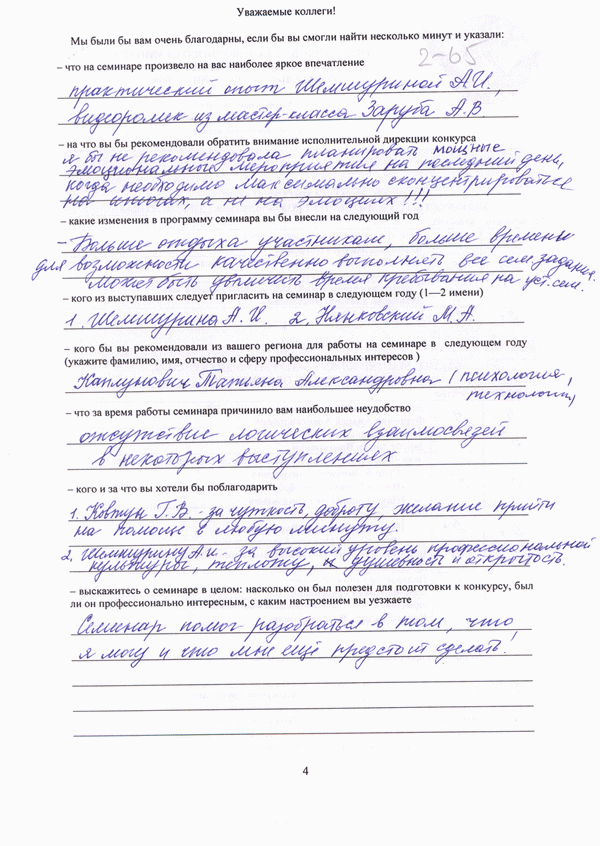 Уважаемые коллеги!
Мы были бы вам очень благодарны, если бы вы смогли найти несколько минут и указали:
2-65
– что на семинаре произвело на вас наиболее яркое впечатление
практический опыт Шемшуриной А.И.,
видеоролик из мастер-класса Заруба А.В
– на что вы бы рекомендовали обратить внимание исполнительной дирекции конкурса
я бы не рекомендовала планировать мощные
эмоциональные мероприятия на последний день,
когда необходимо максимально сконцентрироваться
а не на эмоциях!!!
– какие изменения в программу семинара вы бы внесли на следующий год
– Больше отдыха участникам, больше времени
для возможности качественно выполнять все сем. задания.
Может быть увеличить время пребывания на уст. сем.
– кого из выступавших следует пригласить на семинар в следующем году (1—2 имени)
1. Шемшурина А. И. 2. Нянковский М.А.
– кого бы вы рекомендовали из вашего региона для работы на семинаре в следующем году
(укажите фамилию, имя, отчество и сферу профессиональных интересов )
Каплунович Татьяна Александровна (психология,
технология)
– что за время работы семинара причинило вам наибольшее неудобство
отсутствие логических взаимосвязей
в некоторых выступлениях
– кого и за что вы хотели бы поблагодарить
1. Ковтун Г.В. - за чуткость, доброту, желание прийти
на помощь в любую минуту.
2. Шемшурину А.И. - за высокий уровень профессиональной
культуры, теплоту, душевность и открытость.
– выскажитесь о семинаре в целом: насколько он был полезен для подготовки к конкурсу, был
ли он профессионально интересным, с каким настроением вы уезжаете
Семинар помог разобраться в том, что
я могу и что мне ещё предстоит сделать!
4